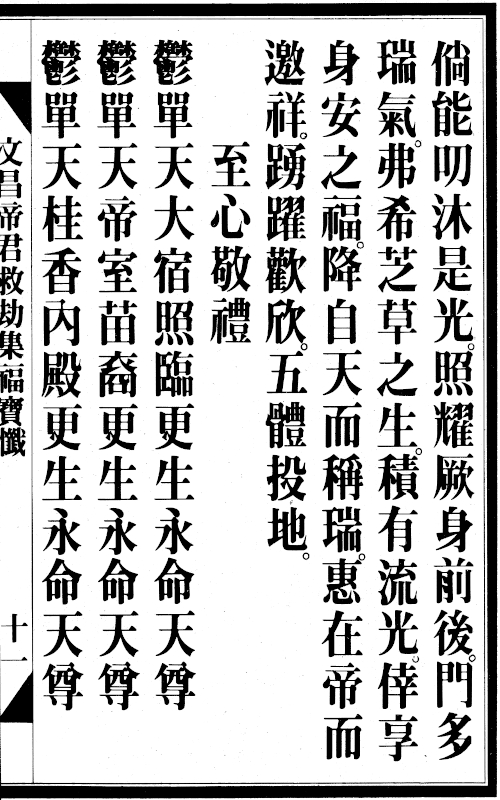 倘能叨沐是光。照耀厥身前後。門多
瑞氣。弗希芝草之生。積有流光。倖享
身安之福。降自天而稱瑞。惠在帝而
邀祥。踴躍歡欣。五體投地。
至心敬禮
鬱單天大宿照臨更生永命天尊
鬱單天帝室苗裔更生永命天尊
鬱單天桂香內殿更生永命天尊
文昌帝君救劫集福寶懺
十一